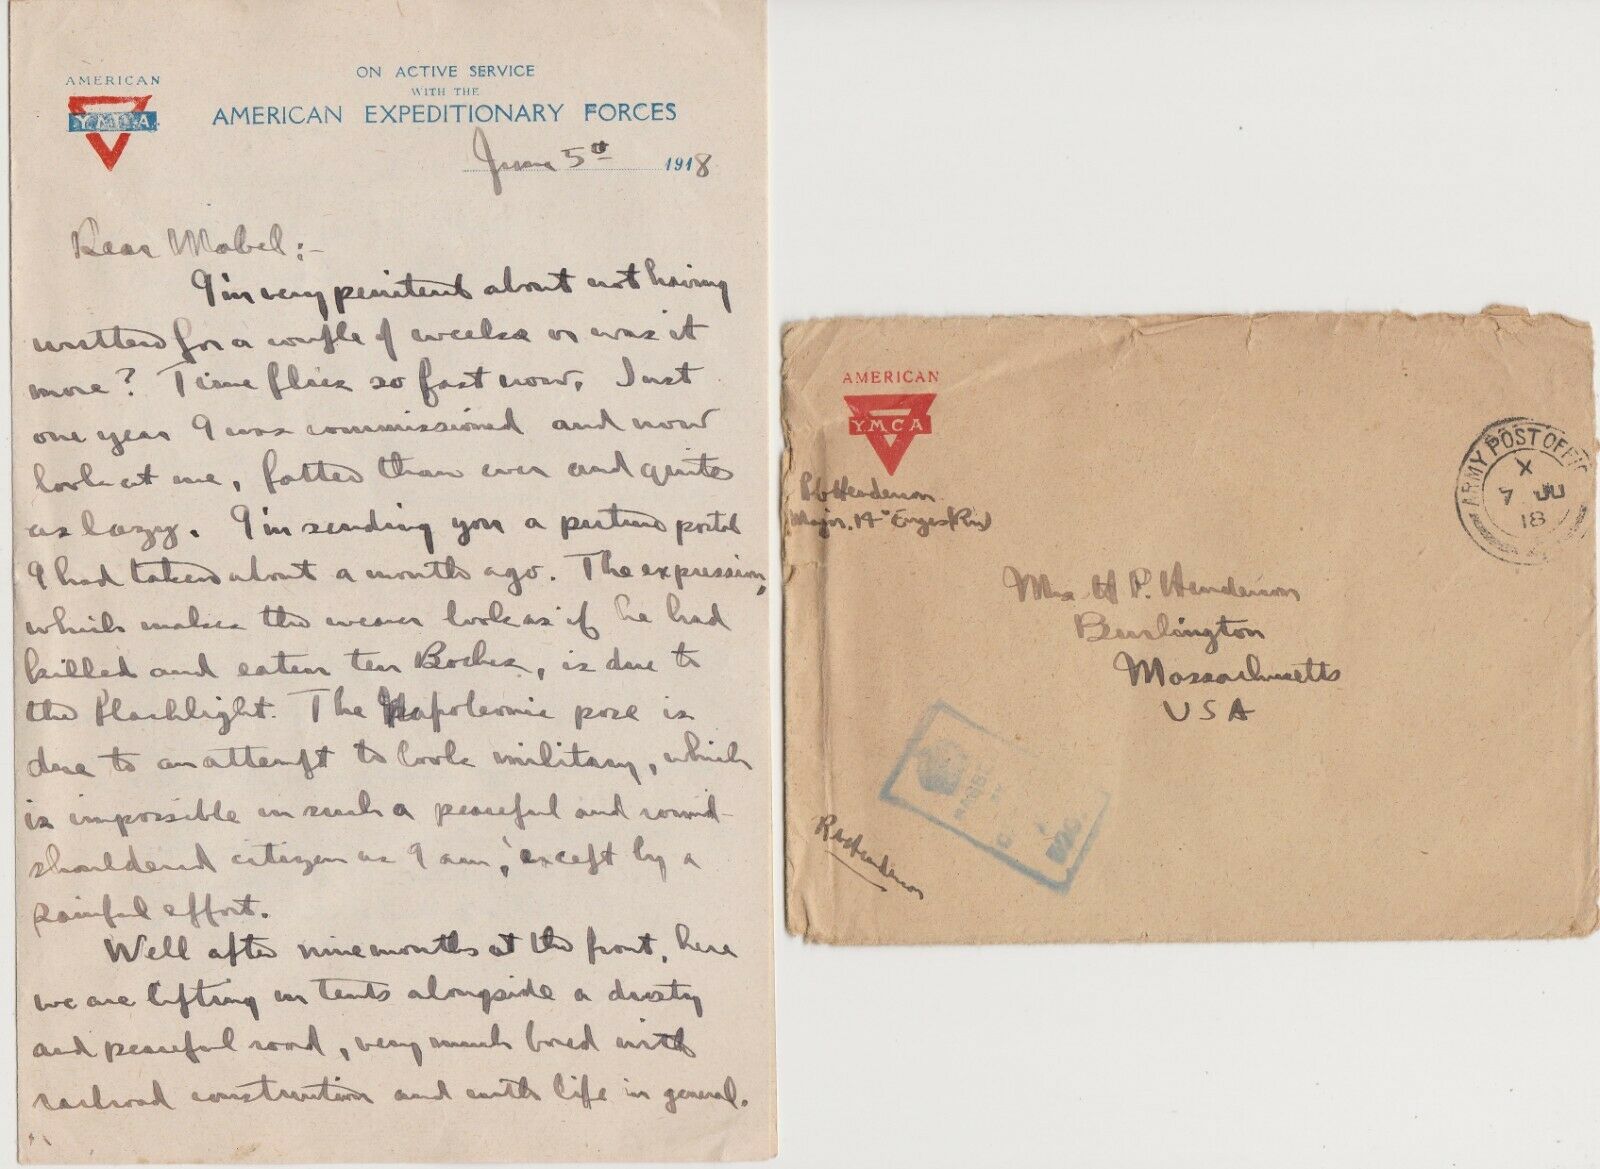 AMERICAN
YMCA
ON ACTIVE SERVICE
WITH THE
AMERICAN EXPEDITIONARY FORCES
June 5th 1918
Dear Mabel:-
I'm very penitent about not having
written for a couple of weeks or was it
more? Time flies so fast now. Just
one year I was commissioned and now
look at me, fatter than ever and quite
as lazy. I'm sending you a picture postal
I had taken about a month ago. The expression,
which makes the wearer look as if he had
killed and eaten ten Boches, is due to
the flashlight. The Napoleonic pose is
due to an attempt to look military, which
is impossible in such a peaceful and round-
shouldered citizen as I am, except by a
painful effort.
Well after nine months at the front, here
we are lifting in tents alongside a dusty
and peaceful road, very much bored with
railroad construction and with life in general.
AMERICAN
YMCA
Henderson
Major, 14th Engrs (Rwy)
ARMY POST OFFIC
X
7 JU
18
Mrs H P. Henderson
Burlington
Massachusetts
USA
Henderson